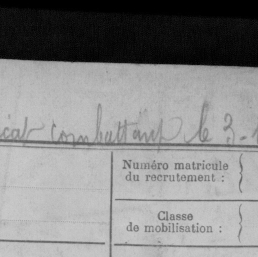 combattant le 3-
Numéro matricule
du recrutement :
Classe
de mobilisation :